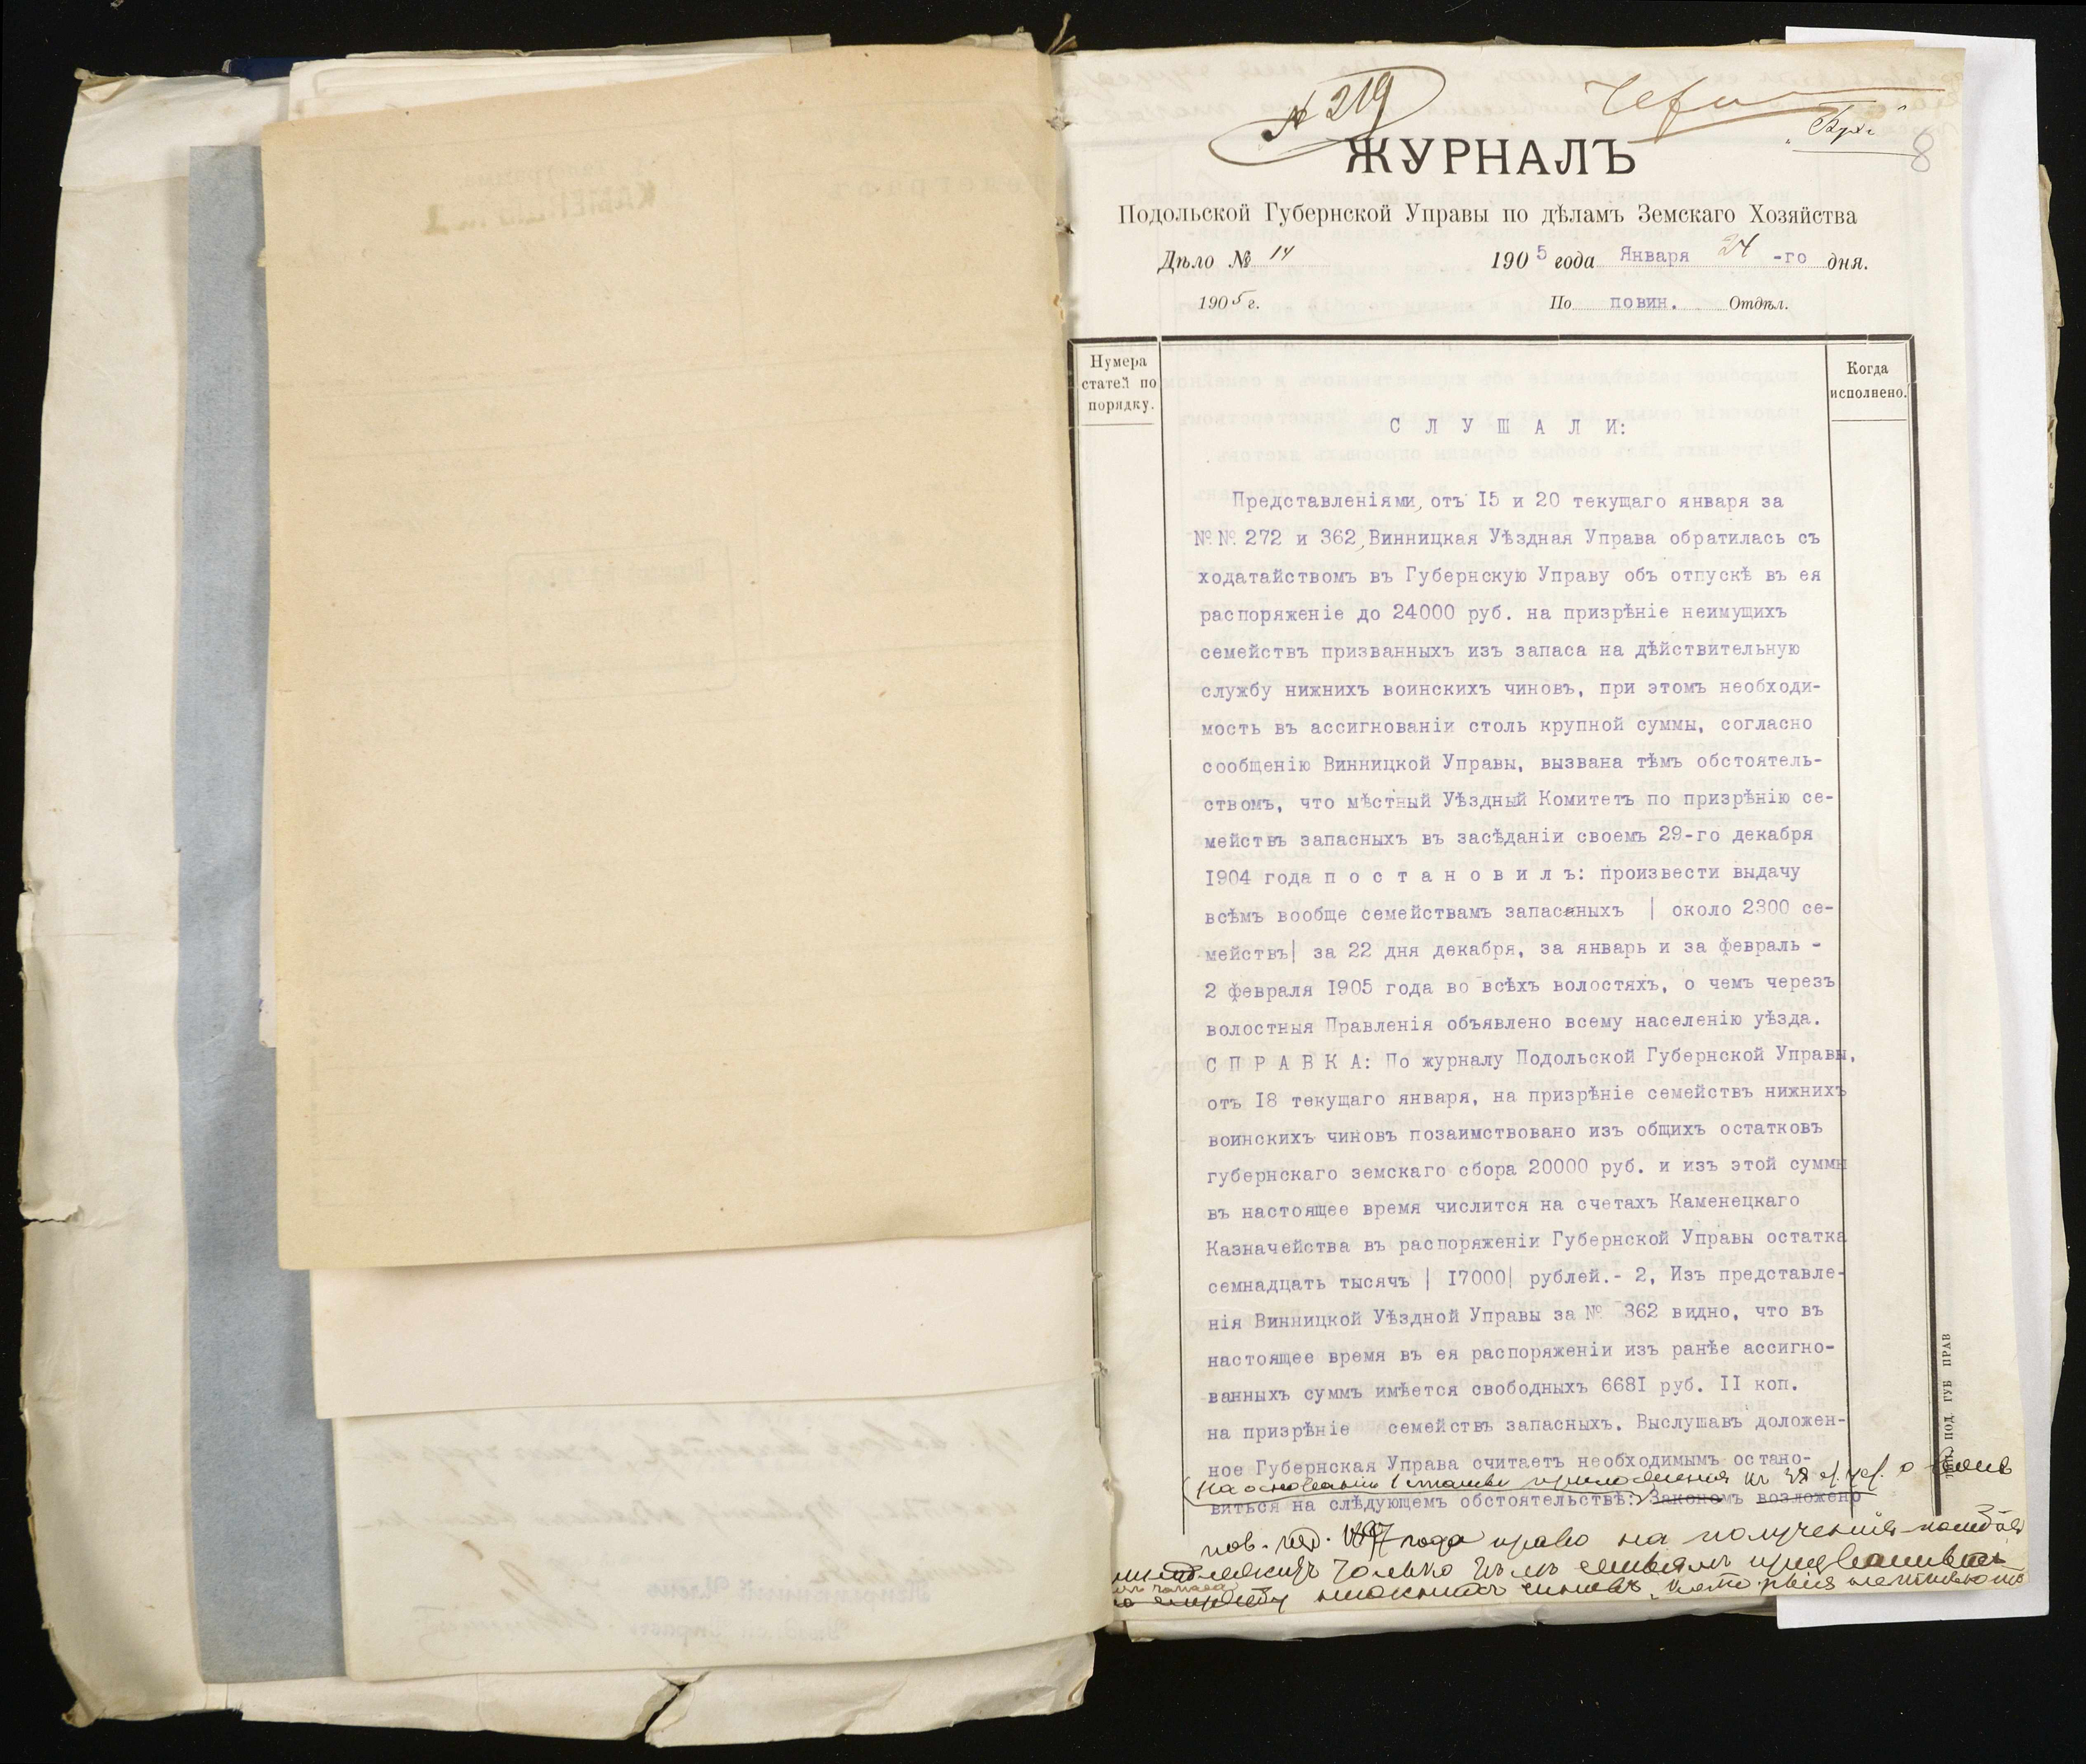 № 219
8
ЖУРНАЛЪ
Подольской Губернской Управы по дѣламъ Земскаго Хозяйства
Дѣло № 14 1905 года Января 24 -го дня.
1905 г. По повин. Отдѣл.
Нумера статей по порядку.
Когда исполнено.
С Л У Ш А Л И:
Представленіями, отъ 15 и 20 текущаго января за
№№ 272 и 362, Винницкая Уѣздная Управа обратилась съ
ходатайствомъ въ Губернскую Управу объ отпускѣ въ ея
распоряженіе до 24000 руб. на призрѣніе неимущихъ
семействъ призванныхъ изъ запаса на дѣйствительную
службу нижнихъ воинскихъ чиновъ, при этомъ необходи-
мость въ ассигнованіи столь крупной суммы, согласно
сообщенію Винницкой Управы, вызвана тѣмъ обстоятель-
ствомъ, что мѣстный Уѣздный Комитетъ по призрѣнію се-
мействъ запасныхъ въ засѣданіи своемъ 29-го декабря
1904 года п о с т а н о в и л ъ: произвести выдачу
всѣмъ вообще семействамъ запасаныхъ | около 2300 се-
мействъ| за 22 дня декабря, за январь и за февраль -
2 февраля 1905 года во всѣхъ волостяхъ, о чемъ черезъ
волостныя Правленія объявлено всему населенію уѣзда.
С П Р А В К А: По журналу Подольской Губернской Управы,
отъ 18 текущаго января, на призрѣніе семействъ нижнихъ
воинскихъ чиновъ позаимствовано изъ общихъ остатковъ
губернскаго земскаго сбора 20000 руб. и изъ этой суммы
въ настоящее время числится на счетахъ Каменецкаго
Казначейства въ распоряженіи Губернской Управы остатка
семнадцать тысячъ | 17000| рублей.- 2, Изъ представле-
нія Винницкой Уѣздной Управы за № 362 видно, что въ
настоящее время въ ея распоряженіи изъ ранѣе ассигно-
ванныхъ суммъ имѣется свободныхъ 6681 руб. 11 коп.
на призрѣніе семействъ запасныхъ. Выслушавъ доложен-
ное Губернская Управа считаетъ необходимымъ остано-
на основаніи 1 статьи приложения къ 38 о воин
виться на слѣдующемъ обстоятельствѣ: Закономъ возложено
пов. изд. 1897 года право на полученія пособія
принадлежитъ только тѣмъ семьямъ призванныхъ
изъ запаса
на службу нижнихъ чиновъ, которыя
ПОД. ГУБ ПРАВ